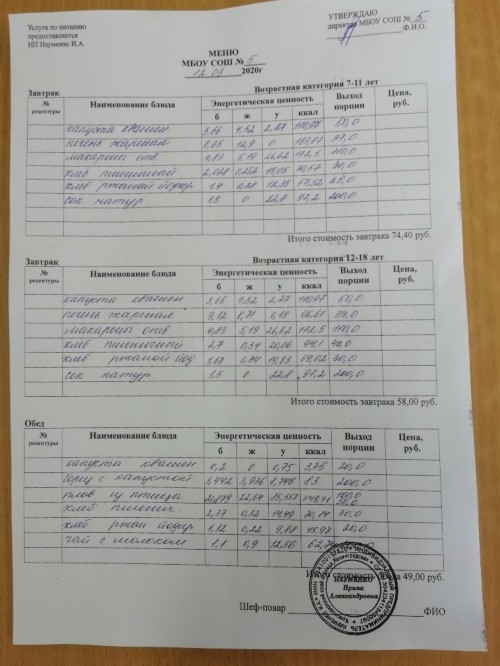 Услуга по питанию
предоставляется
ИП Науменко И.А.
УТВЕРЖДАЮ
директор МБОУ СОШ № 5
Ф.И.О.
МЕНЮ
МБОУ СОШ № 5
2020г
Завтрак Возрастная категория 7-11 лет
№ рецептуры Наименование блюда Энергетическая ценность Выход порции Цена, руб.
б ж у ккал
капуста квашен 3,06 4,52 2,27 60,0
печень жареная 12,9 0
макароны отв 4,83 5,19 26,62 172,5 110,0
хлеб пшеничный 2,028 0,252 15,05 70,57 30,0
хлеб ржаной йодир 1,4 0,28 12,35 57,52 25,0
сок натур 1,5 0 22,8 97,2 200,0
Итого стоимость завтрака 74,40 руб.
Завтрак Возрастная категория 12-18 лет
№ рецептуры Наименование блюда Энергетическая ценность Выход порции Цена, руб.
б ж у ккал
капуста квашен 3,06 4,52 2,27 110,97 60,0
печень жареная 9,12 8,71 6,18 39,0
макароны отв 4,83 5,19 26,62 172,5 110,0
хлеб пшеничный 2,7 0,34 20,06 94,1 40,0
хлеб ржаной йод 1,68 0,34 14,83 69,02 30,0
сок натур 1,5 0 22,8 97,2 200,0
Итого стоимость завтрака 58,00 руб.
Обед
№ рецептуры Наименование блюда Энергетическая ценность Выход порции Цена, руб.
б ж у ккал
капуста квашен 0,2 0 0,75 3,75 20,0
борщ с капустой 1,442 3,936 8,746 83 200,0
плов из птицы 22,64
хлеб пшенич 2,37 0,32 30,0
хлеб ржан йодир 1,12 0,22 9,88 20,0
чай с молоком 1,1 0,9 12,56
49,00 руб.
НАУМЕНКО
Ирина
Александровна
Шеф-повар ФИО